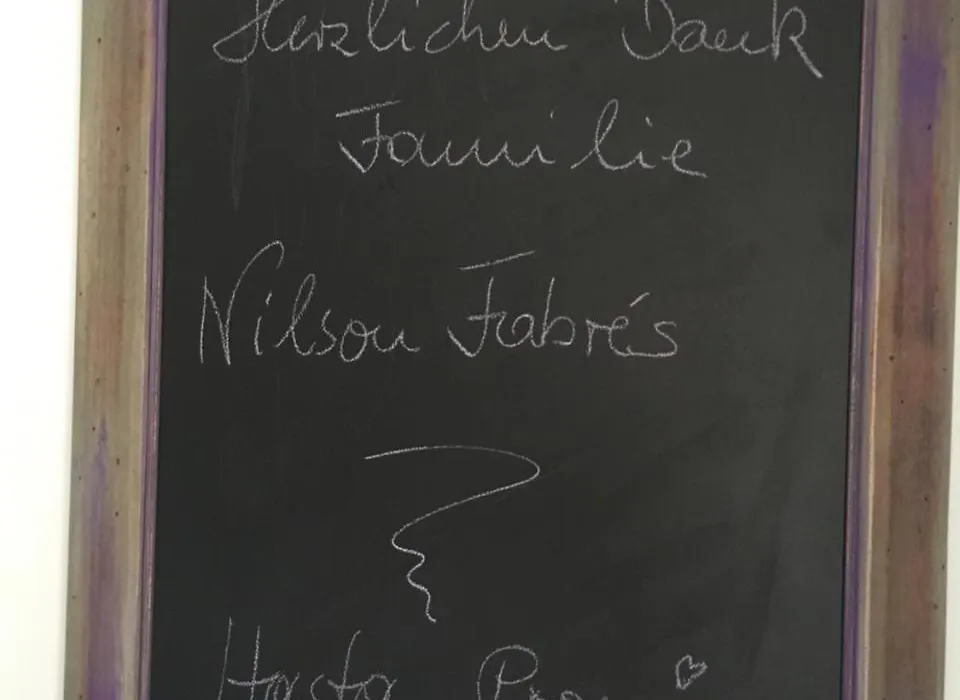 Herzlichen Dank
Familie
Nilson Fabrés
Hasta